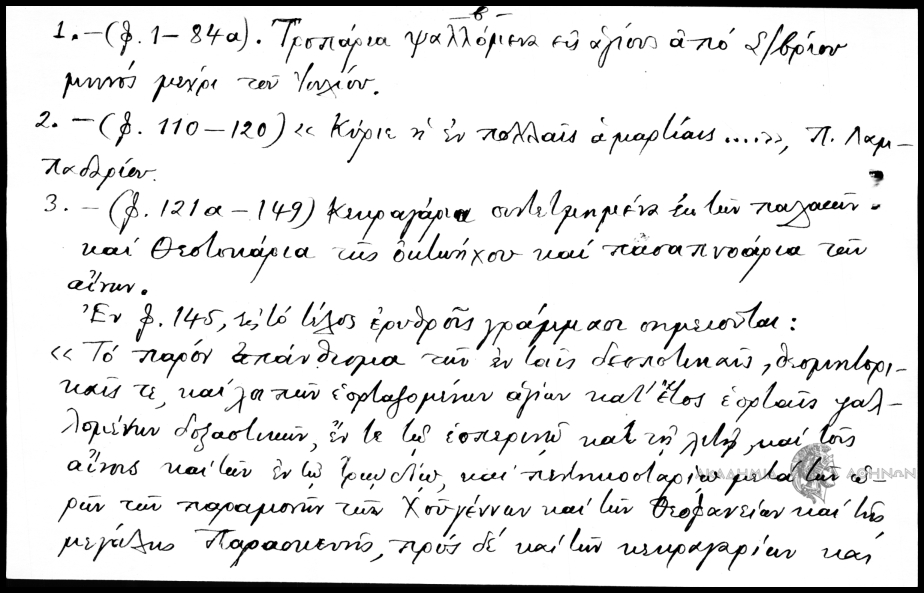 -β-
1.-(φ. 1-84α). Τροπάρια ψαλλόμενα εἰς ἁγίους ἀπό Σ/βρίου
μηνός μέχρι τοῦ Ἰουλίου.
2.-(φ. 110-120) «Κύριε ἡ ἐν πολλαῖς ἁμαρτίαις....», Π. Λαμ-
παδαρίου.
3.-(φ. 121α-149) Κεκραγάρια συντετμημένα ἐκ τῶν παλαιῶν.
καί Θεοτοκάρια τῆς ὀκτωήχου καί πασαπνοάρια τῶν
αἴνων.
Ἐν φ. 145, εἰς τό τέλος ἐρυθροῖς γράμμασι σημειοῦται:
«Τό παρόν ἀπάνθισμα τῶν ἐν ταῖς δεσποτικαῖς, θεομητορι-
καῖς τε, καί λοιπῶν ἑορταζομένων ἁγίων κατ' ἔτος ἑορταῖς ψαλ-
λομένων δοξαστικῶν, ἔν τε τῷ ἑσπερινῷ καί τῇ λιτῇ, καί τοῖς
αἴνοις καί τῶν ἐν τῷ Τριωδίῳ, καί πεντηκοσταρίῳ μετά τῶν ὡ-
ρῶν τῶν παραμονῶν τῶν Χ/ουγέννων καί τῶν Θεοφανείων καί τῆς
μεγάλης Παρασκευῆς, πρός δέ καί τῶν κεκραγαρίων καί
ΑΚΑΔΗΜΙΑ ΑΘΗΝΩΝ